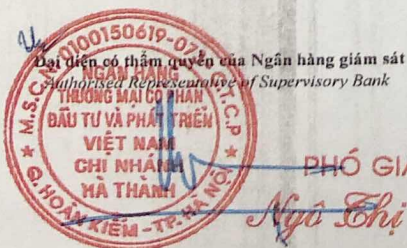 Đại diện có thẩm quyền của Ngân hàng giám sát
Authorised Representative of Supervisory Bank
M.S.C.N: 0100150619-07
C.T.C.P
NGÂN HÀNG
THƯƠNG MẠI CỔ PHẦN
ĐẦU TƯ VÀ PHÁT TRIỂN
VIỆT NAM
CHI NHÁNH
HÀ THÀNH
Q. HOÀN KIẾM - TP. HÀ NỘI
PHÓ GIÁ
Ngô Thị